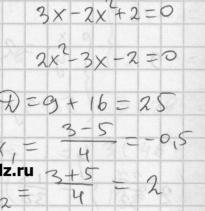 3x-2x²+2=0
2x²-3x-2=0
D=9+16=25
x₁ = (3-5)/4 = -0,5
x₂ = (3+5)/4 = 2